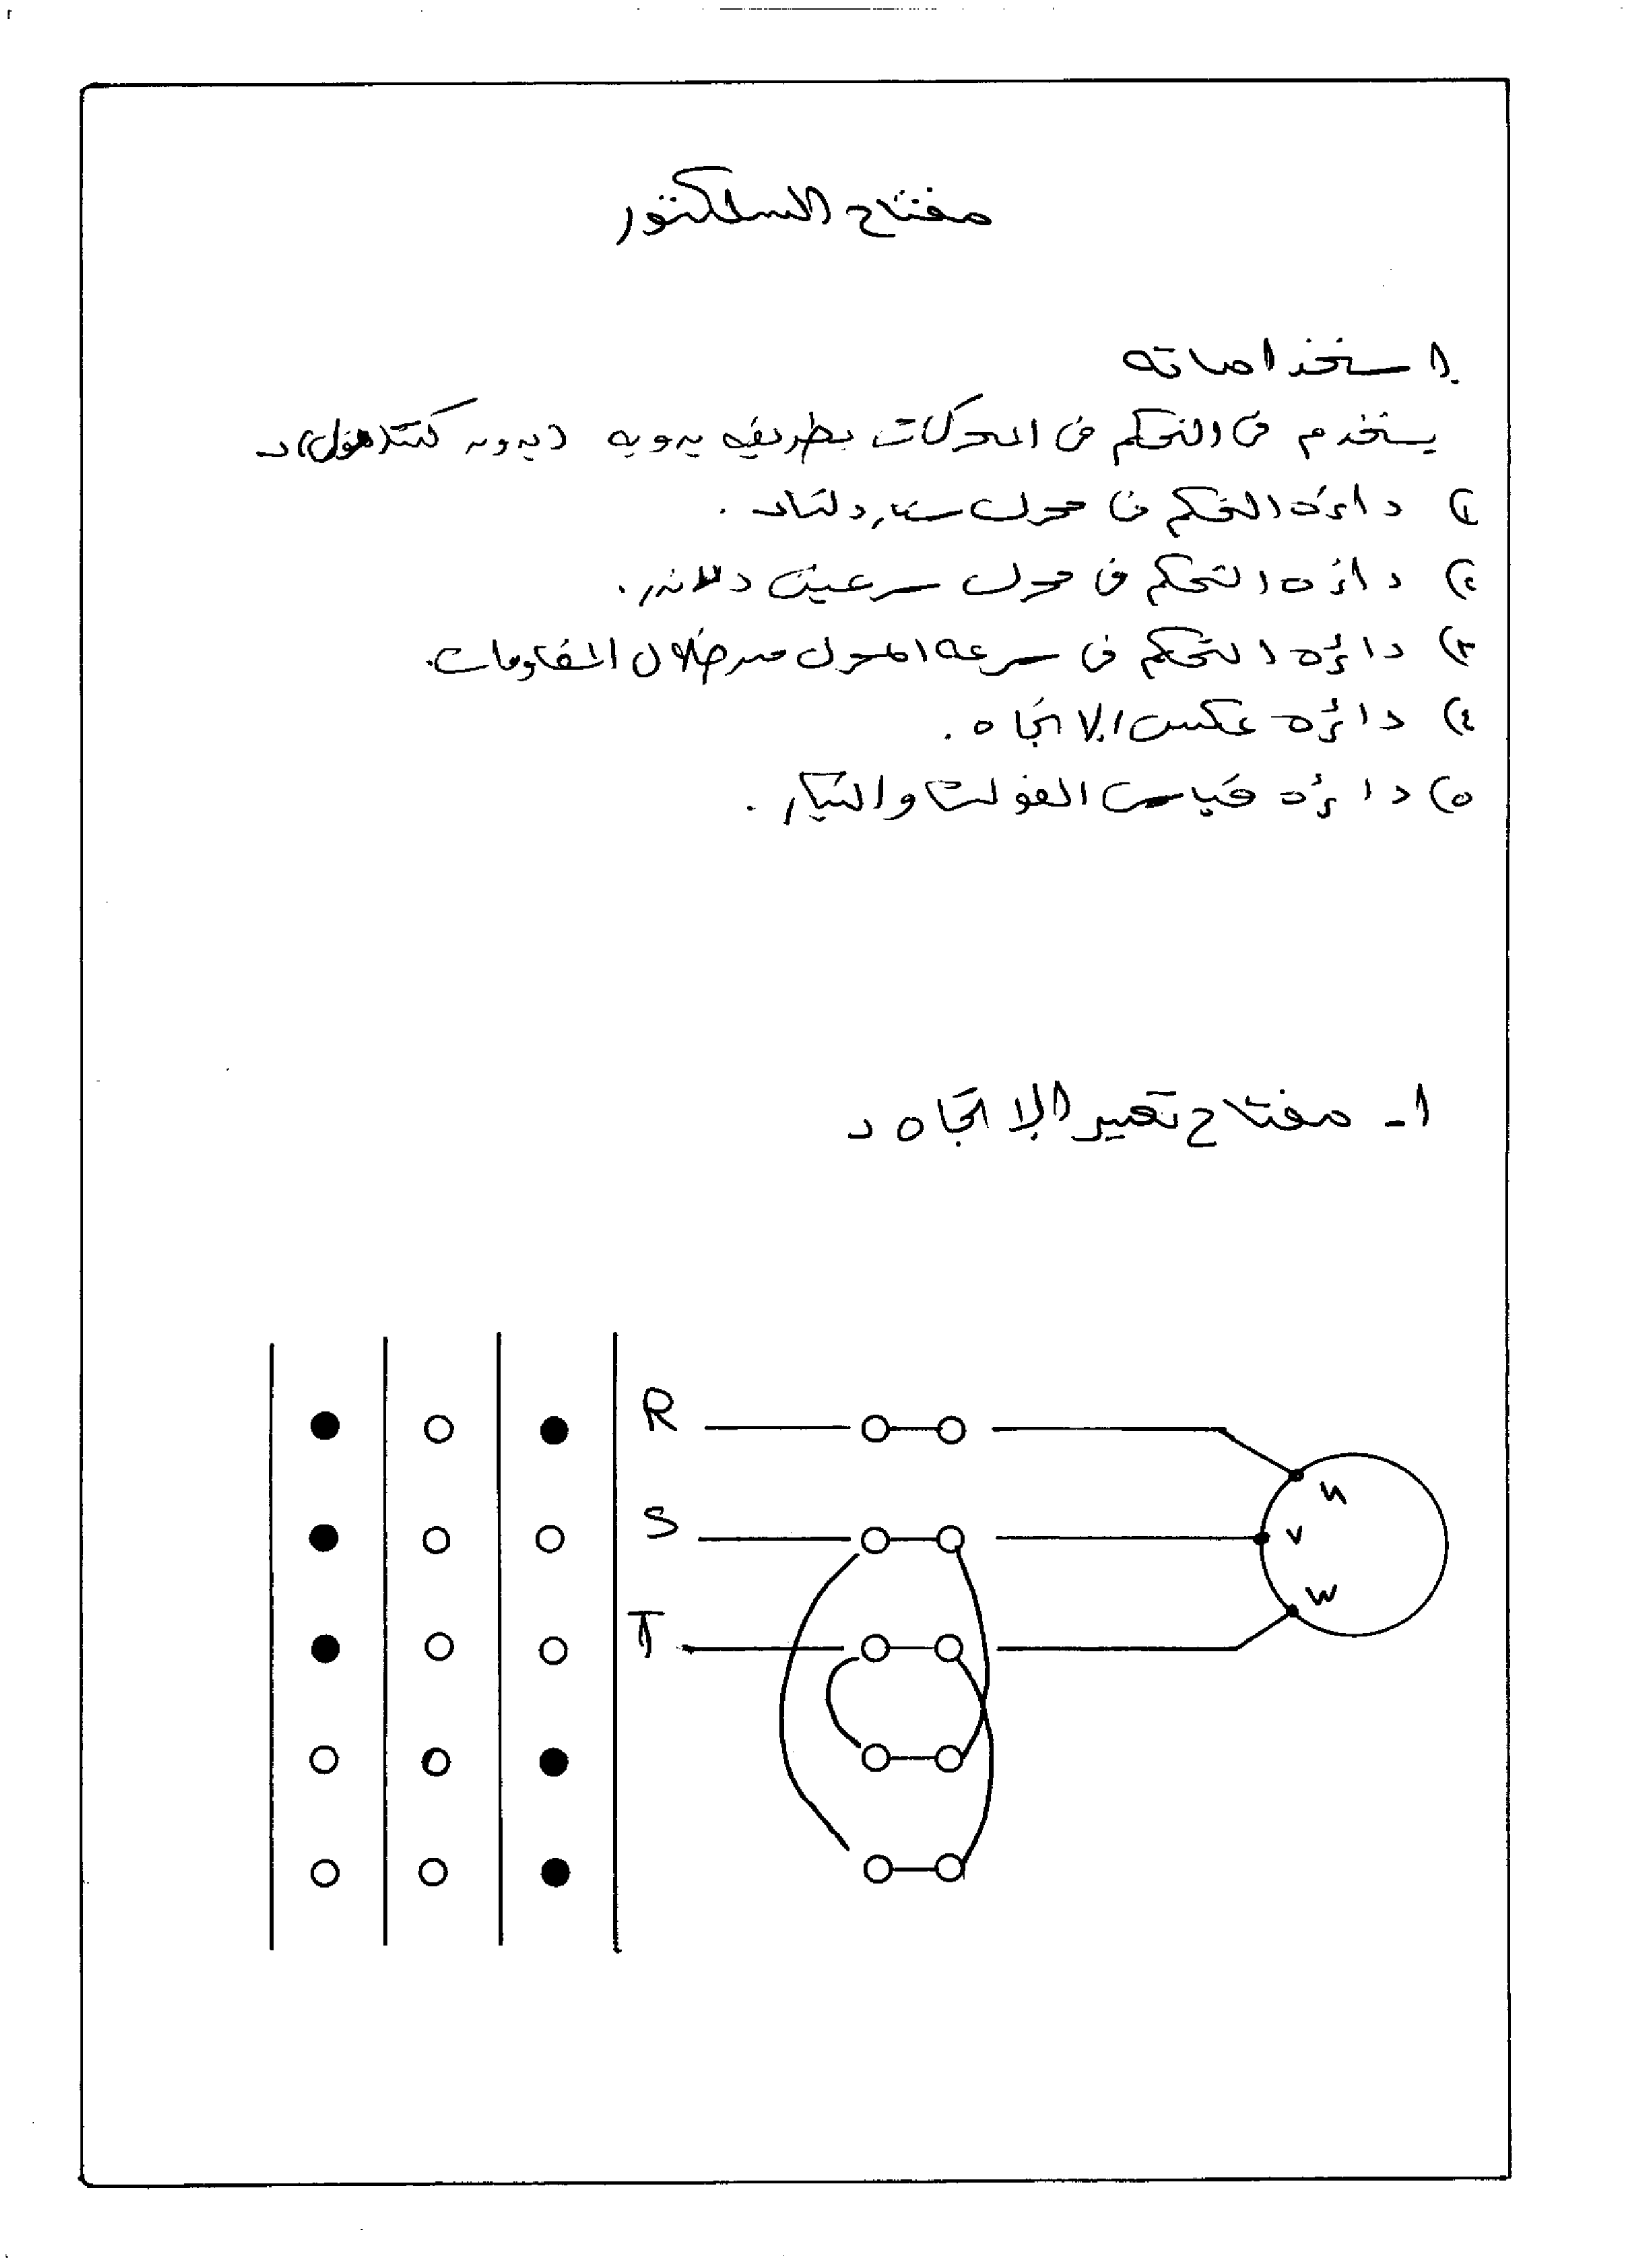 مفتاح السلكتور
إستخداماته
يستخدم فى التحكم فى المحركات بطريقه يدويه (بدون كنتكتول)
١) دائره التحكم فى محرك ستار دلتا.
٢) دائره التحكم فى محرك سرعتين دلاندر.
٣) دائره التحكم فى سرعه المحرك من خلال المقاومات.
٤) دائره عكس الإتجاه.
٥) دائره قياس الفولت والتيار.
١- مفتاح تغير الإتجاه
R
S
T
u
v
w